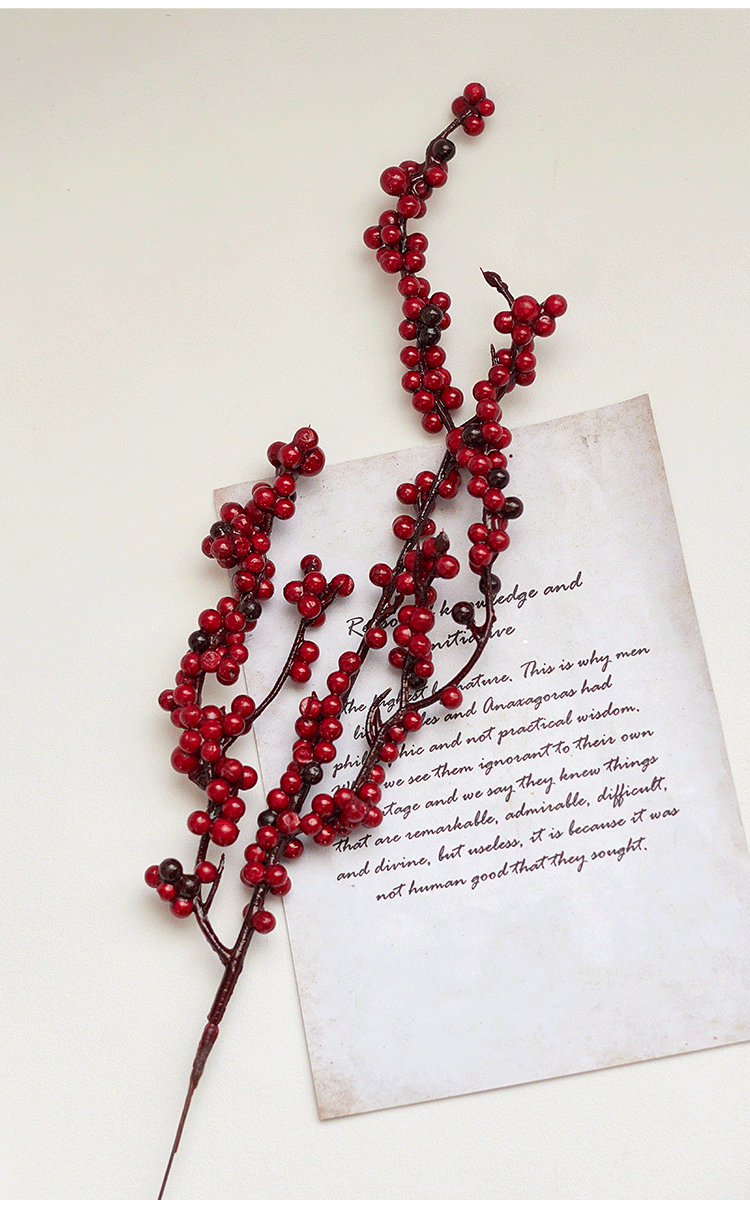 knowledge and
the highest nature. This is why men
and Anaxagoras had
and not practical wisdom.
we see them ignorant to their own
and we say they knew things
that are remarkable, admirable, difficult,
and divine, but useless, it is because it was
not human good that they sought.